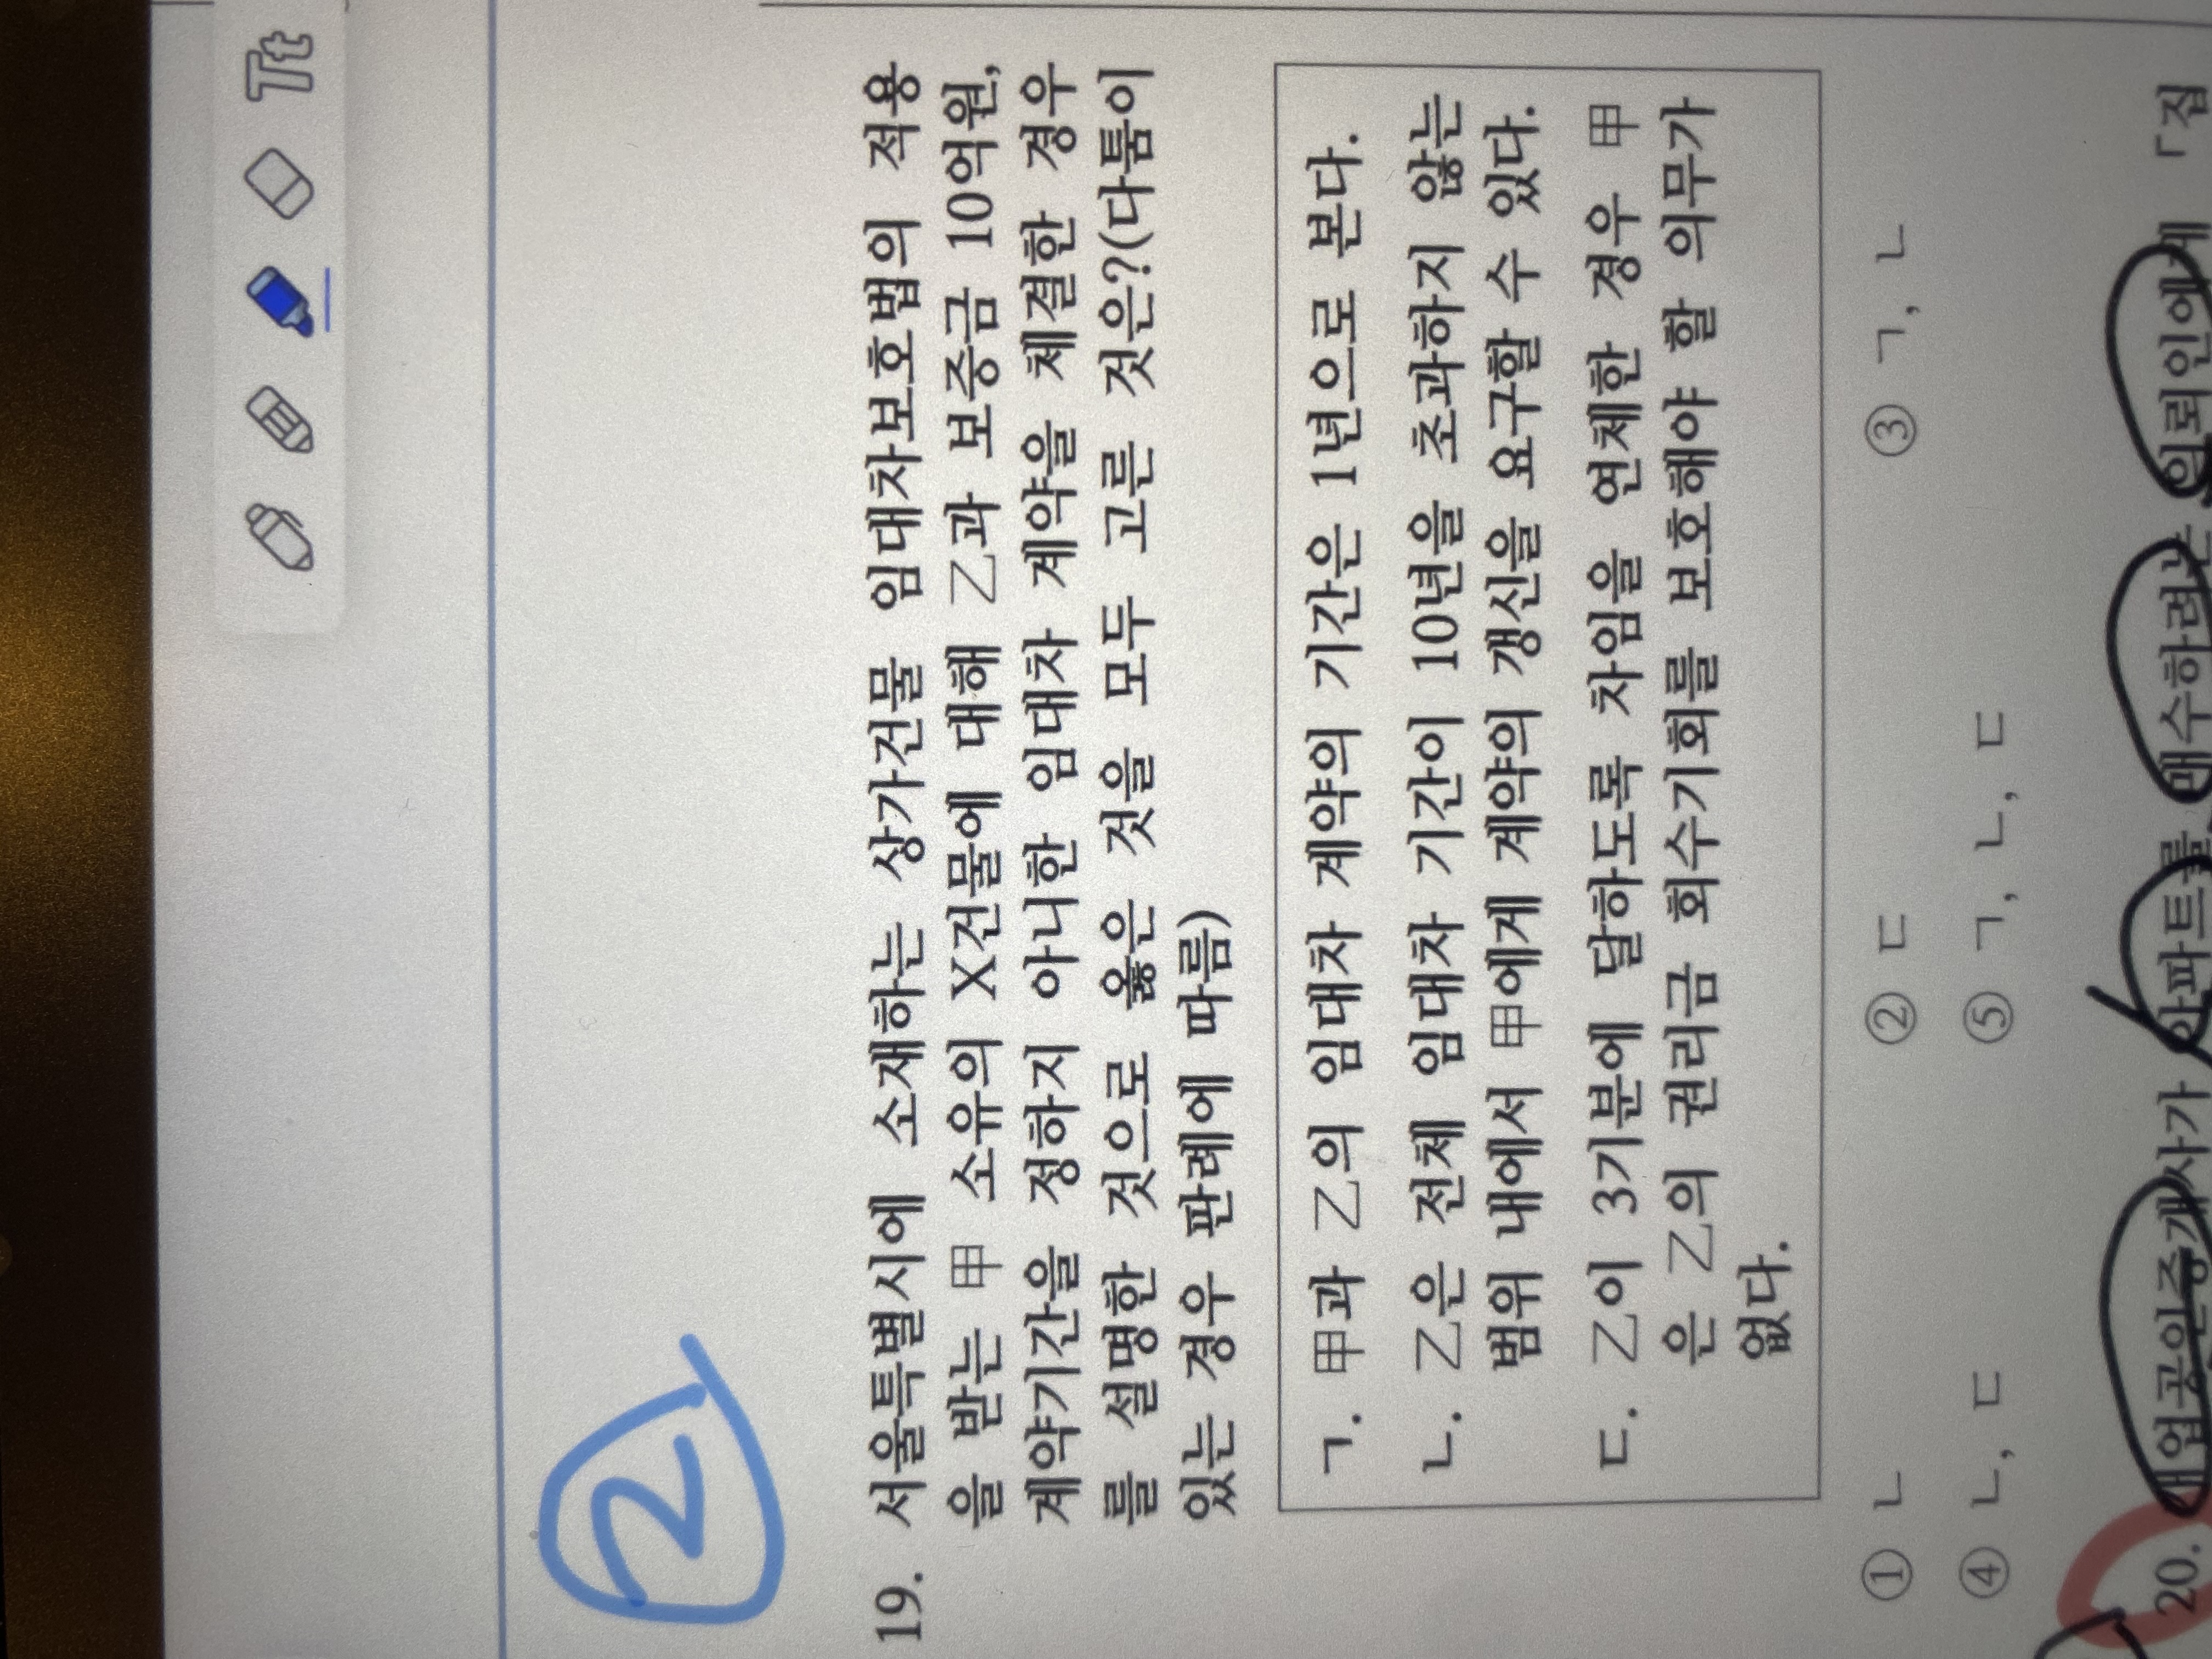 Tt
2
19. 서울특별시에 소재하는 상가건물 임대차보호법의 적용
을 받는 甲 소유의 X건물에 대해 乙과 보증금 10억원,
계약기간을 정하지 아니한 임대차 계약을 체결한 경우
를 설명한 것으로 옳은 것을 모두 고른 것은?(다툼이
있는 경우 판례에 따름)
ㄱ. 甲과 乙의 임대차 계약의 기간은 1년으로 본다.
ㄴ. 乙은 전체 임대차 기간이 10년을 초과하지 않는
범위 내에서 甲에게 계약의 갱신을 요구할 수 있다.
ㄷ. 乙이 3기분에 달하도록 차임을 연체한 경우 甲
은 乙의 권리금 회수기회를 보호해야 할 의무가
없다.
① ㄴ ② ㄷ ③ ㄱ, ㄴ
④ ㄴ, ㄷ ⑤ ㄱ, ㄴ, ㄷ
20. 개업공인중개사가 아파트를 매수하려는 의뢰인에게 「집